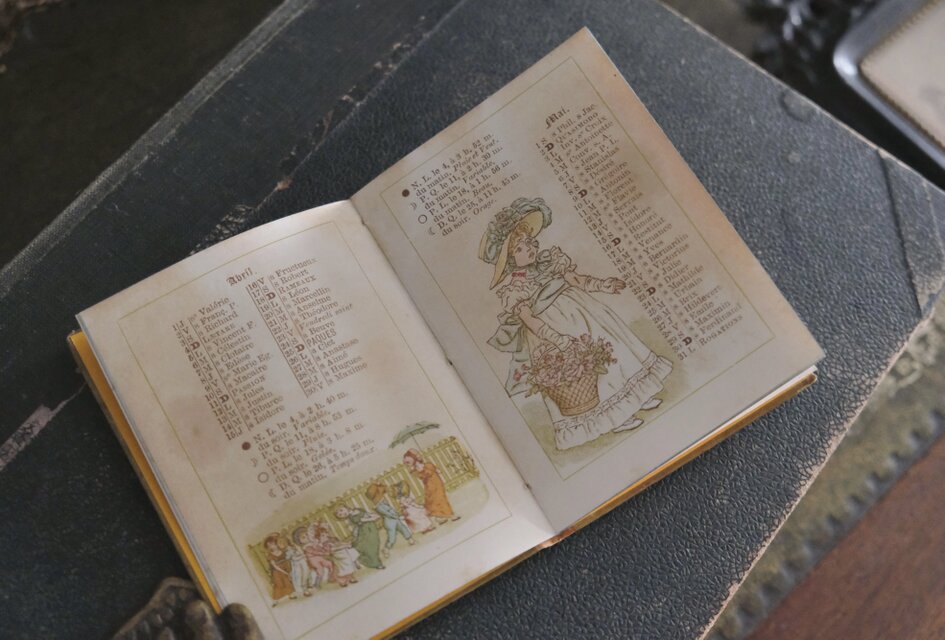 Avril.
1 J s Valérie
2 V s Franç. P.
3 S s Richard
4 D LÆTARE
5 L s Vincent F.
6 M s Célestin
7 M s Clotaire
8 J s Edèse
9 V s Marie Eg.
10 S s Macaire
11 D PASSION
12 L s Jules
13 M s Justin
14 M s Tiburce
15 J s Isidore
16 V s Fructueux
17 S s Robert
18 D RAMEAUX
19 L s Léon
20 M s Marcellin
21 M s Anselme
22 J s Théodore
23 V Vendredi saint
24 S s Beuve
25 D PAQUES
26 L s Clet
27 M s Anastase
28 M s Aimé
29 J s Hugues
30 V s Maxime
N. L. le 4, à 2 h. 40 m.
du soir. Variable.
P. Q. le 11, à 8 h. 53 m.
du soir. Pluie.
P. L. le 18, à 3 h. 8 m.
du soir. Gelée.
D. Q. le 26, à 5 h. 25 m.
du matin. Temps doux.
N. L. le 4, à 3 h. 52 m.
du matin. Pluie et Vent.
P. Q. le 11, à 2 h. 30 m.
du matin. Variable.
P. L. le 18, à 1 h. 56 m.
du matin. Beau.
D. Q. le 25, à 11 h. 45 m.
du soir. Orage.
Mai.
1 S s Phil. s Jac.
2 D QUASIMODO
3 L Inv. ste Croix
4 M s Antoinette
5 M Conv. s. A.
6 J s Jean P. L.
7 V s Stanislas
8 S s Désiré
9 D s Grégoire
10 L s Antonin
11 M s
12 M s Flavie
13 J s Servais
14 V s Pacôme
15 S s Isidore
16 D s Honoré
17 L s Restitut
18 M s Venance
19 M s Yves
20 J s Bernardin
21 V s Hospice
22 S s Julie
23 D s Didier
24 L s
25 M s Urbain
26 M s
27 J s Hildevert
28 V s Emile
29 S s Maximin
30 D s Ferdinand
31 L ROGATIONS